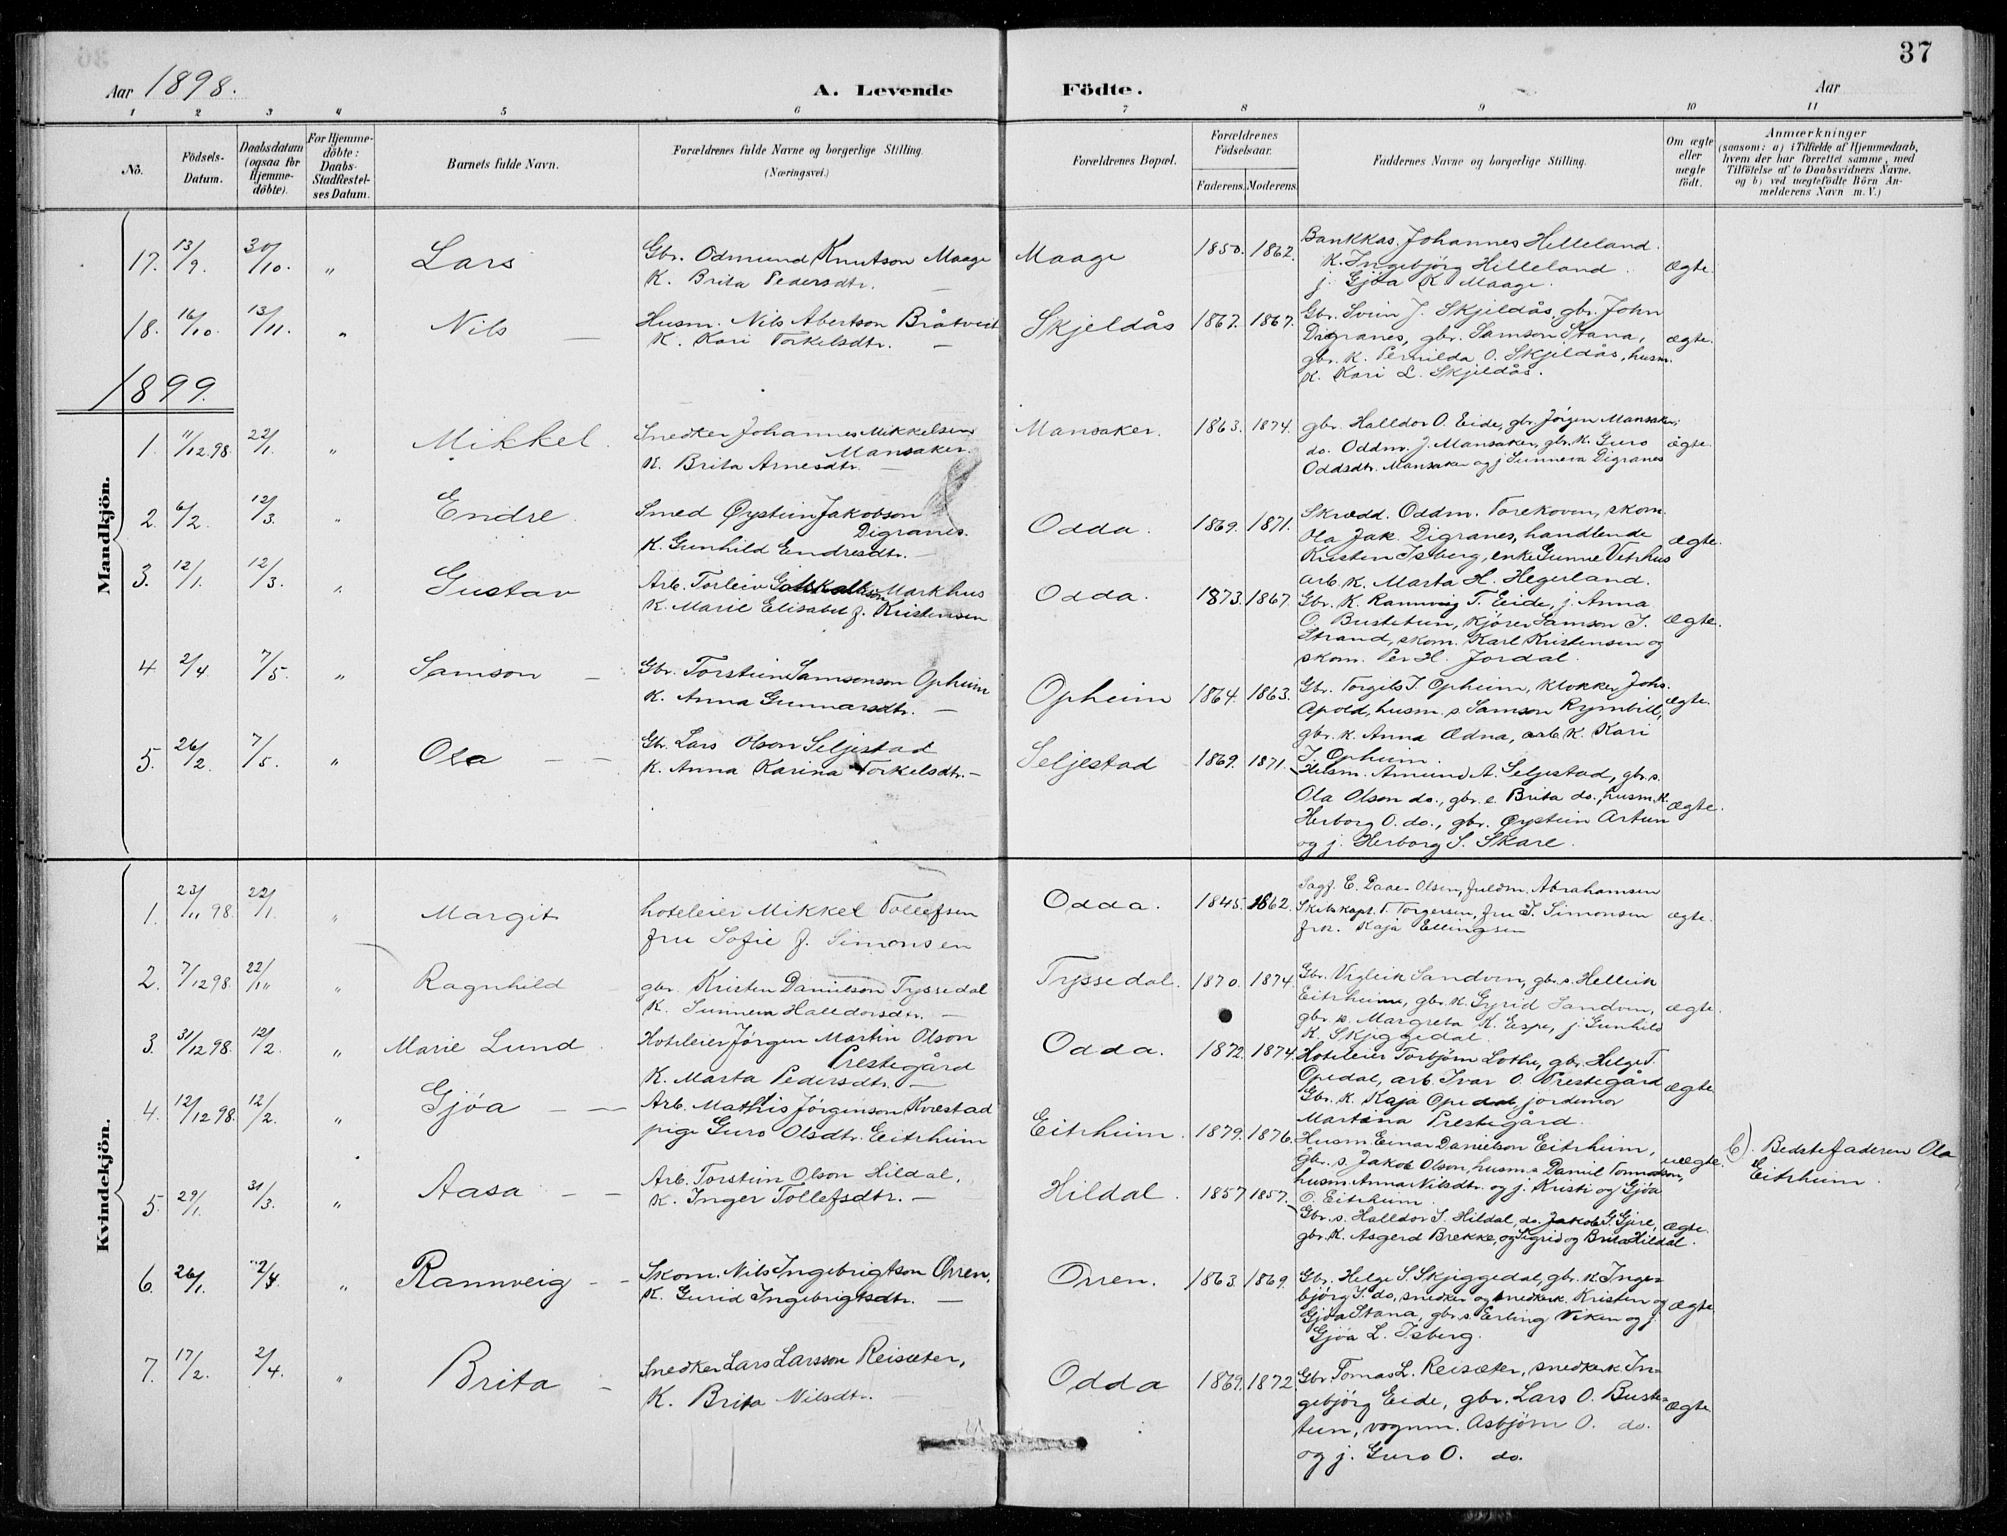 37
Aar 1898.
A. Levende Födte.
Aar
1 2 3 4 5 6 7 8 9 10 11
No.
Födsels-Datum.
Daabsdatum (ogsaa for Hjemme-döbte).
For Hjemme-döbte: Daabs-Stadfestel-ses Datum.
Barnets fulde Navn.
Forældrenes fulde Navne og borgerlige Stilling.
(Næringsvei.)
Forældrenes Bopæl.
Forældrenes Födselsaar.
Faderens. Moderens.
Faddernes Navne og borgerlige Stilling.
Om ægte eller uægte födt.
Anmærkninger
(saasom: a) i Tilfælde af Hjemmedaab,
hvem der har forrettet samme, med
Tilföielse af to Daabsvidners Navne,
og b) ved uægtefödte Börn An-
melderens Navn m. V.)
17. 13/9. 30/10. " Lars
Gbr. Odmund Knutson Maage
K. Brita Pedersdtr. —
Maage 1850. 1862.
Bankkas. Johannes Helleland.
K. Ingebjörg Helleland.
j. Gjöa K. Maage.
ægte.
18. 16/10. 13/11. " Nils —
Husm. Nils Abertson Bråtveit
K. Kari Torkelsdtr. —
Skjeldås 1867. 1867.
Gbr. Svein J. Skjeldås, gbr. John
Digranes, gbr. Samson Stana,
gbr. K. Pernilda O. Skjeldås, husm.
K. Kari L. Skjeldås.
ægte.
1899.
Mandkjön.
1. 11/12 98 22/1. " Mikkel.
Snedker Johannes Mikkelsen
Mansaker.
K. Brita Arnesdtr. —
Mansaker. 1863. 1874.
gbr. Halldor O. Eide, gbr. Jörgen Mansaker,
do. Oddm. J. Mansaker, gbr. K. Guro
Oddsdtr. Mansaker og j. Sunneva Digranes
ægte.
2. 6/2. 12/3. " Endre.
Smed Øystein Jakobson
Digranes.
K. Gunhild Endresdtr. —
Odda. 1869. 1871.
Skrædd. Oddm. Tokekoven, skom.
Ola Jak. Digranes, handlende
Kristen Isberg, enke Gunne Vetrhus
arb. K. Marta H. Hegerland.
ægte.
3. 12/1. 12/3. " Gustav
Arb. Torleiv Gottskalkson Markhus
K. Marie Elisabet f. Kristensen
Odda. 1873. 1867.
Gbr. K. Rannveig T. Eide, j. Anna
O. Bustetun, kjörer Samson J.
Strand, skom. Karl Kristensen og
skom. Per H. Jordal.
ægte.
4 2/4. 7/5. " Samson —
Gbr. Torstein Samsonson Opheim
K. Anna Gunnarsdtr. —
Opheim 1864. 1863.
Gbr. Torgils T. Opheim, klokker Johs.
Apold, husm. s. Samson Rymbill,
gbr. K. Anna Ædna, arb. K. Kari
T. Opheim.
ægte.
5. 26/2. 7/5. " Ola — —
Gbr. Lars Olson Seljestad
K. Anna Karina Torkelsdtr. —
Seljestad 1869. 1871.
Husm. Amund A. Seljestad, gbr. s.
Ola Olson do., gbr. e. Brita do., husm. K.
Herborg O. do., gbr. Øystein Artun
og j. Herborg S. Skare.
ægte.
Kvindekjön.
1. 23/11 98. 22/1. " Margit
hoteleier Mikkel Tollefsen
fru Sofie f. Simonsen
Odda. 1845. 1862.
Sagf. E. Daae-Olsen, fuldm. Abrahamsen
Skibskapt. T. Torgersen, fru J. Simonsen
frk. Kaja Ellingsen
ægte.
2. 7/12 98 22/1 " Ragnhild
gbr. Kristen Danielson Tyssedal
K. Sunneva Halldorsdtr. —
Tyssedal. 1870. 1874.
Gbr. Vigleik Sandven, gbr. s. Helleik
Eitrheim, gbr. K. Gyrid Sandven,
gbr. s. Margreta K. Espe, j. Gunhild
K. Skjeggedal.
ægte.
3. 31/12 98. 12/2. " Marie Lund.
Hoteleier Jörgen Martin Olson
Prestegård
K. Marta Pedersdtr. —
Odda. 1872. 1874.
Hoteleier Torbjörn Lothe, gbr. Helge T.
Opedal, arb. Ivar O. Prestegård
Gbr. K. Kaja Opedal jordemor
Martina Prestegård.
ægte.
4. 12/12 98. 12/2. " Gjöa — —
Arb. Mathis Jörgenson Kvestad
pige Guro Olsdtr. Eitrheim
Eitrheim. 1879. 1876.
Husm. Einar Danielson Eitrheim,
gbr. s. Jakob Olson, husm. s. Daniel Tommason,
husm. Anna Nilsdtr. og j. Kristi og Gjöa
O. Eitrheim
uægte.
b). Bedstefaderen Ola
Eitrheim.
5. 29/1. 31/3. " Aasa — —
Arb. Torstein Olson Hildal.
K. Inger Tollefsdtr. —
Hildal. 1857 1857.
Gbr. s. Halldor S. Hildal, do. Jakob G. Gjere,
gbr. K. Asgerd Brekke, og Sigrid og Brita Hildal.
ægte
6. 26/1. 2/4. " Rannveig — —
Skom. Nils Ingebrigtson Orren.
K. Gurid Ingebrigtsdtr. —
Orren. 1863. 1869.
Gbr. Helge S. Skjeggedal, gbr. K. Inge-
björg S. do, snedker og snedkerk. Kristen og
Gjöa Stana, gbr. s. Erling Viken og j.
Gjöa L. Isberg.
ægte
7. 17/2. 2/4. " Brita —
Snedker Lars Larsson Reisæter,
K. Brita Nilsdtr. —
Odda 1869. 1872.
Gbr. Tomas L. Reisæter, snedkerk. In-
gebjörg Eide, gbr. Lars O. Buste-
tun, vognm. Asbjörn O. do.
og j. Guro O. do.
ægte